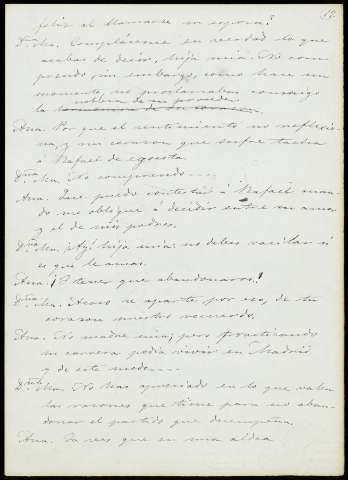 19
feliz al llamarse mi esposa?
Dña Ma. Complácenme en verdad lo que
acabas de decir, hija mia. No com
prendo sin embargo, como hace un
momento, no proclamabas conmigo
nobleza de su proceder
la
Ana. Por que el sentimiento no reflexio-
na, y mi corazon que sufre tacha
á Rafael de egoista.
Dña Ma. No comprendo....
Ana. Que puedo contestar á Rafael cuan-
do me obligue á decidir entre su amor
y el de mis padres.
Dña Ma. ¡Ay! hija mia: no debes vacilar si
es que le amas.
Ana. ¡Y tener que abandonaros!
Dña Ma. Acaso se aparte por eso, de tu
corazon nuestro recuerdo.
Ana. No madre mia; pero practicando
mi carrera podia vivir en Madrid
y de este modo....
Dña Ma. No has apreciado en lo que valen
las razones que tiene para no aban-
donar el partido que desempeña.
Ana. Ya ves que en una aldea